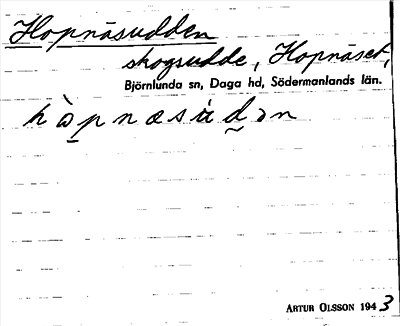 Hopnäsudden
skogsudde, Hopnäset,
Björnlunda sn, Daga hd, Södermanlands län.
ARTUR OLSSON 1943